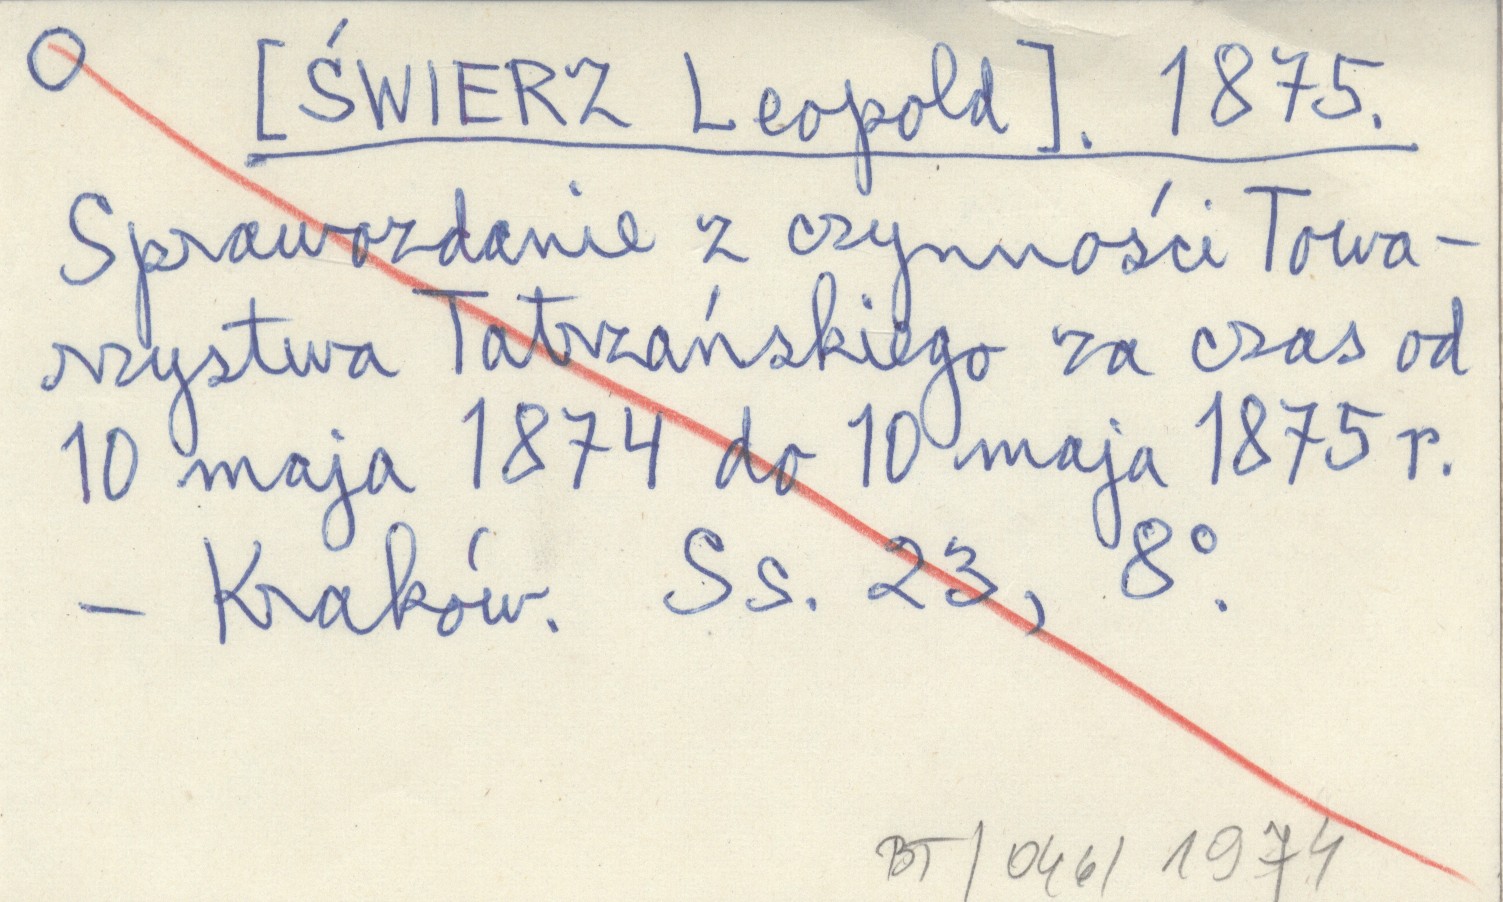 [ŚWIERZ Leopold]. 1875.
Sprawozdanie z czynności Towa-
rzystwa Tatrzańskiego za czas od
10 maja 1874 do 10 maja 1875 r.
- Kraków. Ss. 23, 8°.
BT/046/1974